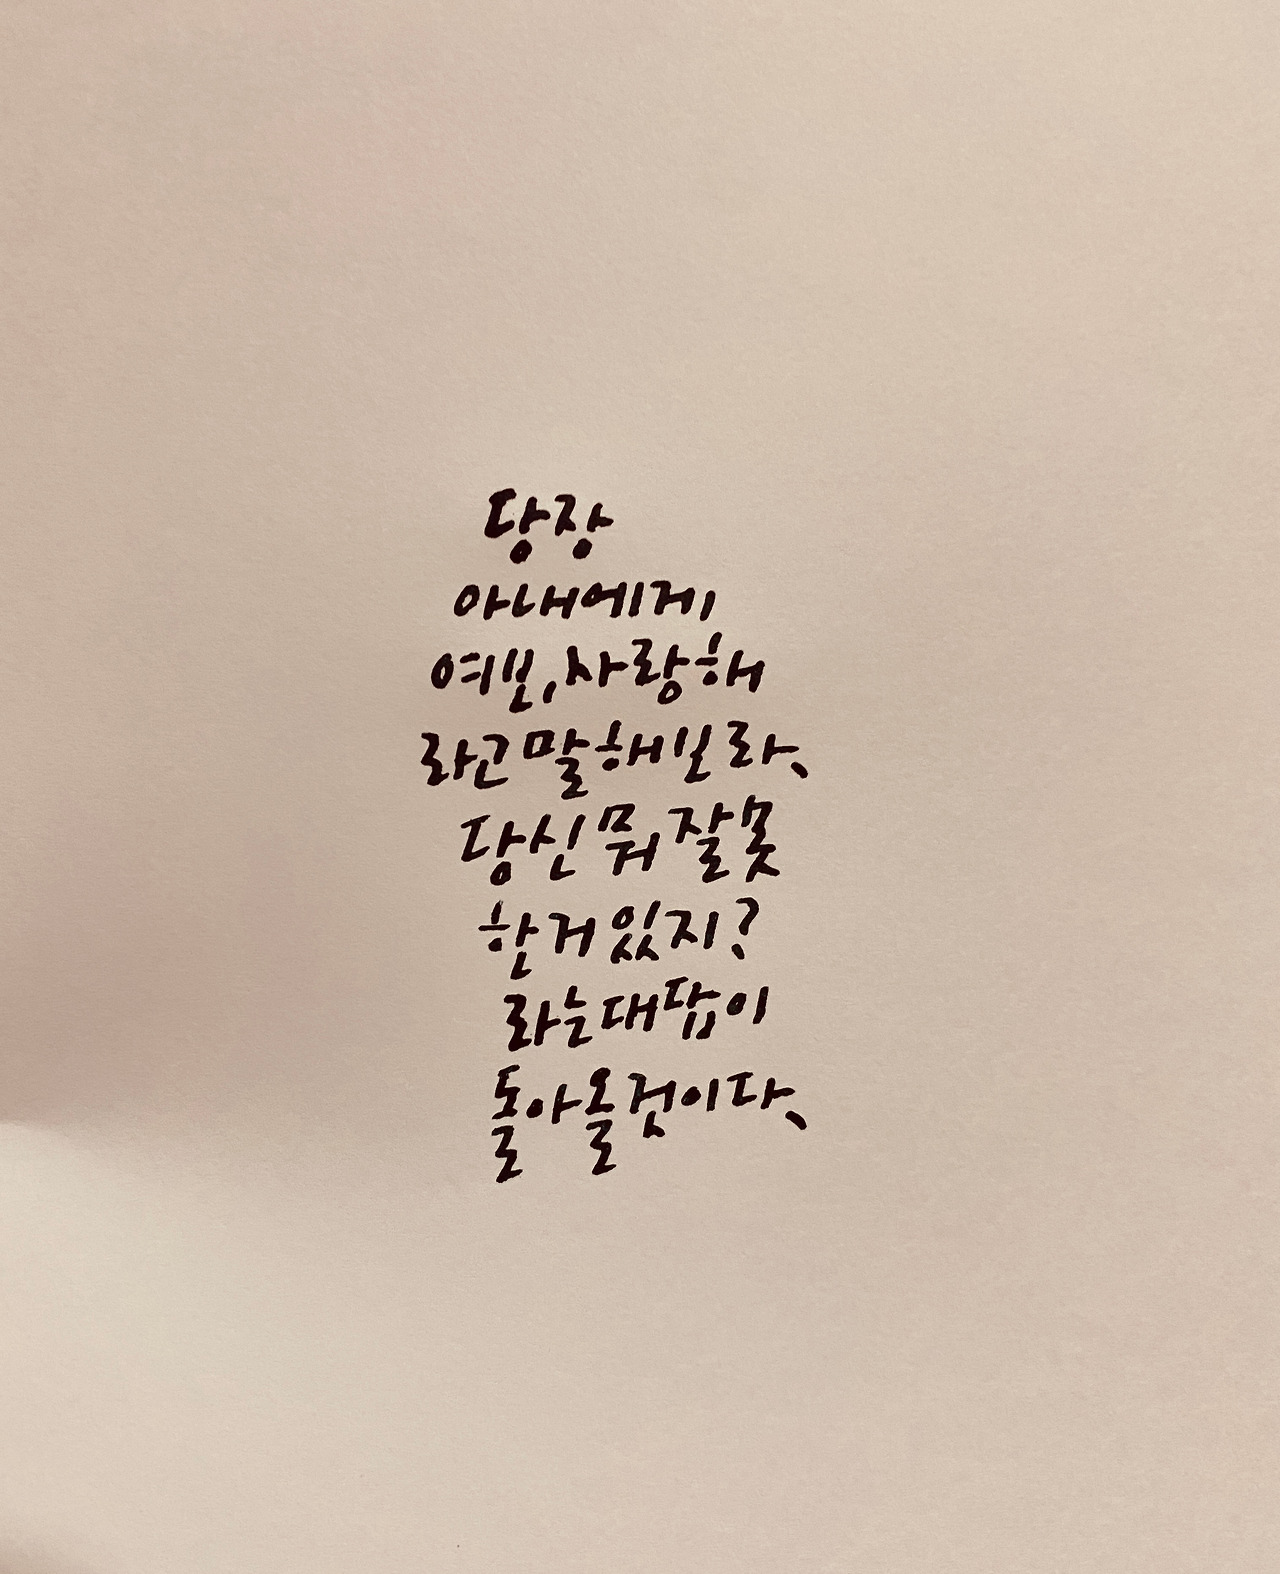 당장
아내에게
여보, 사랑해
라고 말해보라.
당신 뭐 잘못
한거 있지?
라는 대답이
돌아올것이다.